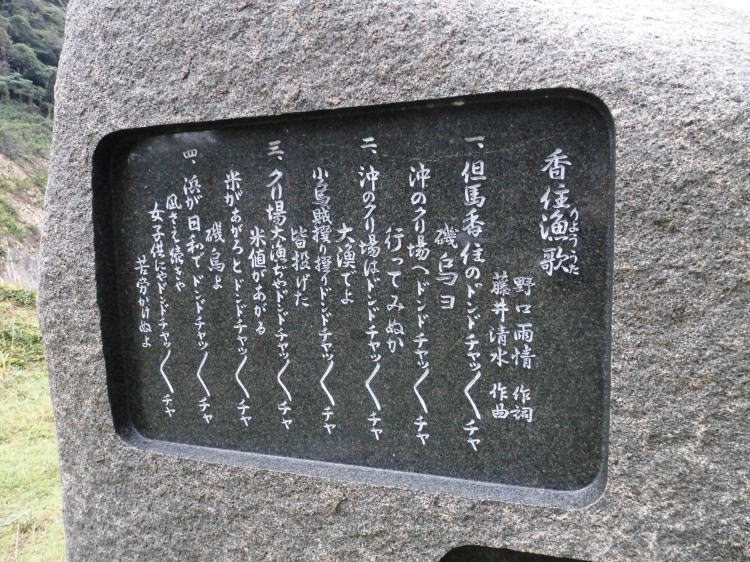 香住漁歌
りょううた
野口雨情 作詞
藤井清水 作曲
一、但馬香住のドンドチャッ〱チャ
磯鳥ヨ
沖のクリ場へドンドチャッ〱チャ
行ってみぬか
二、沖のクリ場はドンドチャッ〱チャ
大漁でよ
小烏賊撰り撰りドンドチャッ〱チャ
皆投げた
三、クリ場大漁ぢやドンドチャッ〱チャ
米値があがる
米があがろとドンドチャッ〱チャ
磯鳥よ
四、浜が日和で ドンドチャッ〱チャ
風さえ続きや
女子供にやドンドチャッ〱チャ
苦労かけぬよ